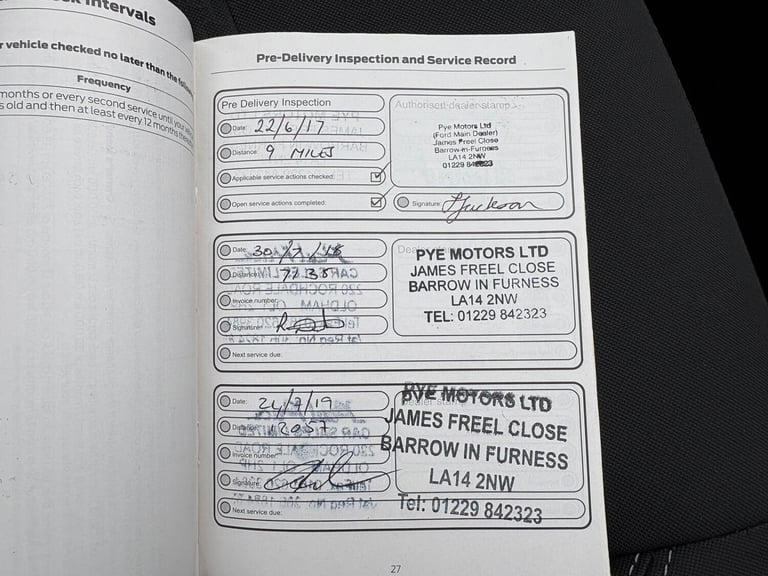 ck Intervals
r vehicle checked no later than the follo
Frequency
months or every second service until your veh
s old and then at least every 12 months therea
Pre-Delivery Inspection and Service Record
Pre Delivery Inspection
Date: 22/6/17
Distance: 9 MILES
Applicable service actions checked:
Open service actions completed:
Authorised dealer stamp
Pye Motors Ltd
(Ford Main Dealer)
James Freel Close
Barrow-in-Furness
LA14 2NW
01229
Signature: Jackson
Date: 30/7/18
Distance: 7738
Invoice number:
Signature:
Next service due:
PYE MOTORS LTD
JAMES FREEL CLOSE
BARROW IN FURNESS
LA14 2NW
TEL: 01229 842323
Date: 24/7/19
Distance: 12057
Invoice number:
Signature:
Next service due:
PYE MOTORS LTD
JAMES FREEL CLOSE
BARROW IN FURNESS
LA14 2NW
Tel: 01229 842323
27